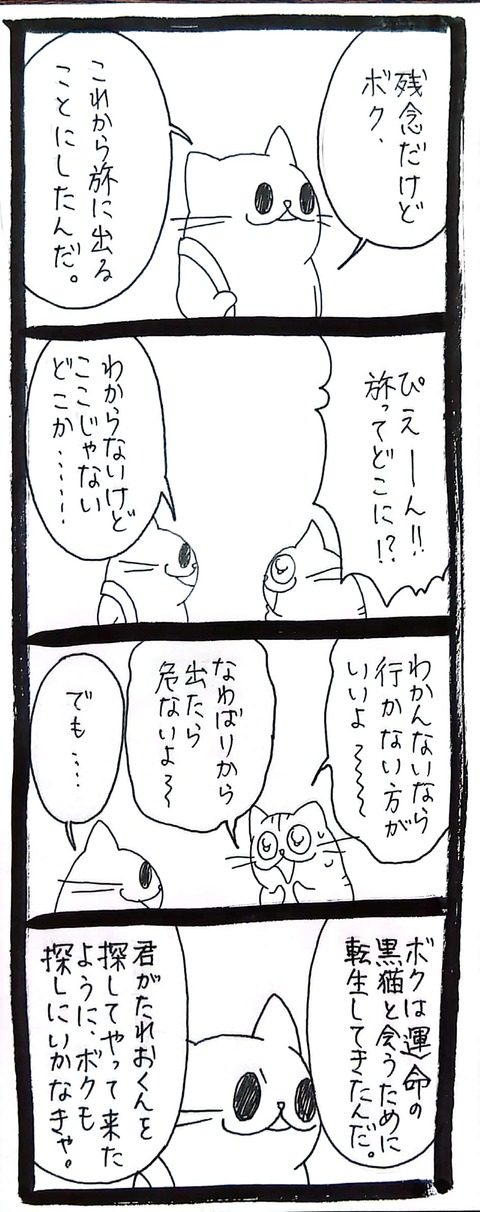 残念だけど
ボク、
これから旅に出る
ことにしたんだ。
ぴえーーん!!
旅ってどこに!?
わからないけど
ここじゃない
どこか……!
わかんないなら
行かない方が
いいよ〜〜〜
なわばりから
出たら
危ないよ〜
でも…
ボクは運命の
黒猫と会うために
転生してきたんだ。
君がたれおくんを
探してやって来た
ように、ボクも
探しにいかなきゃ。